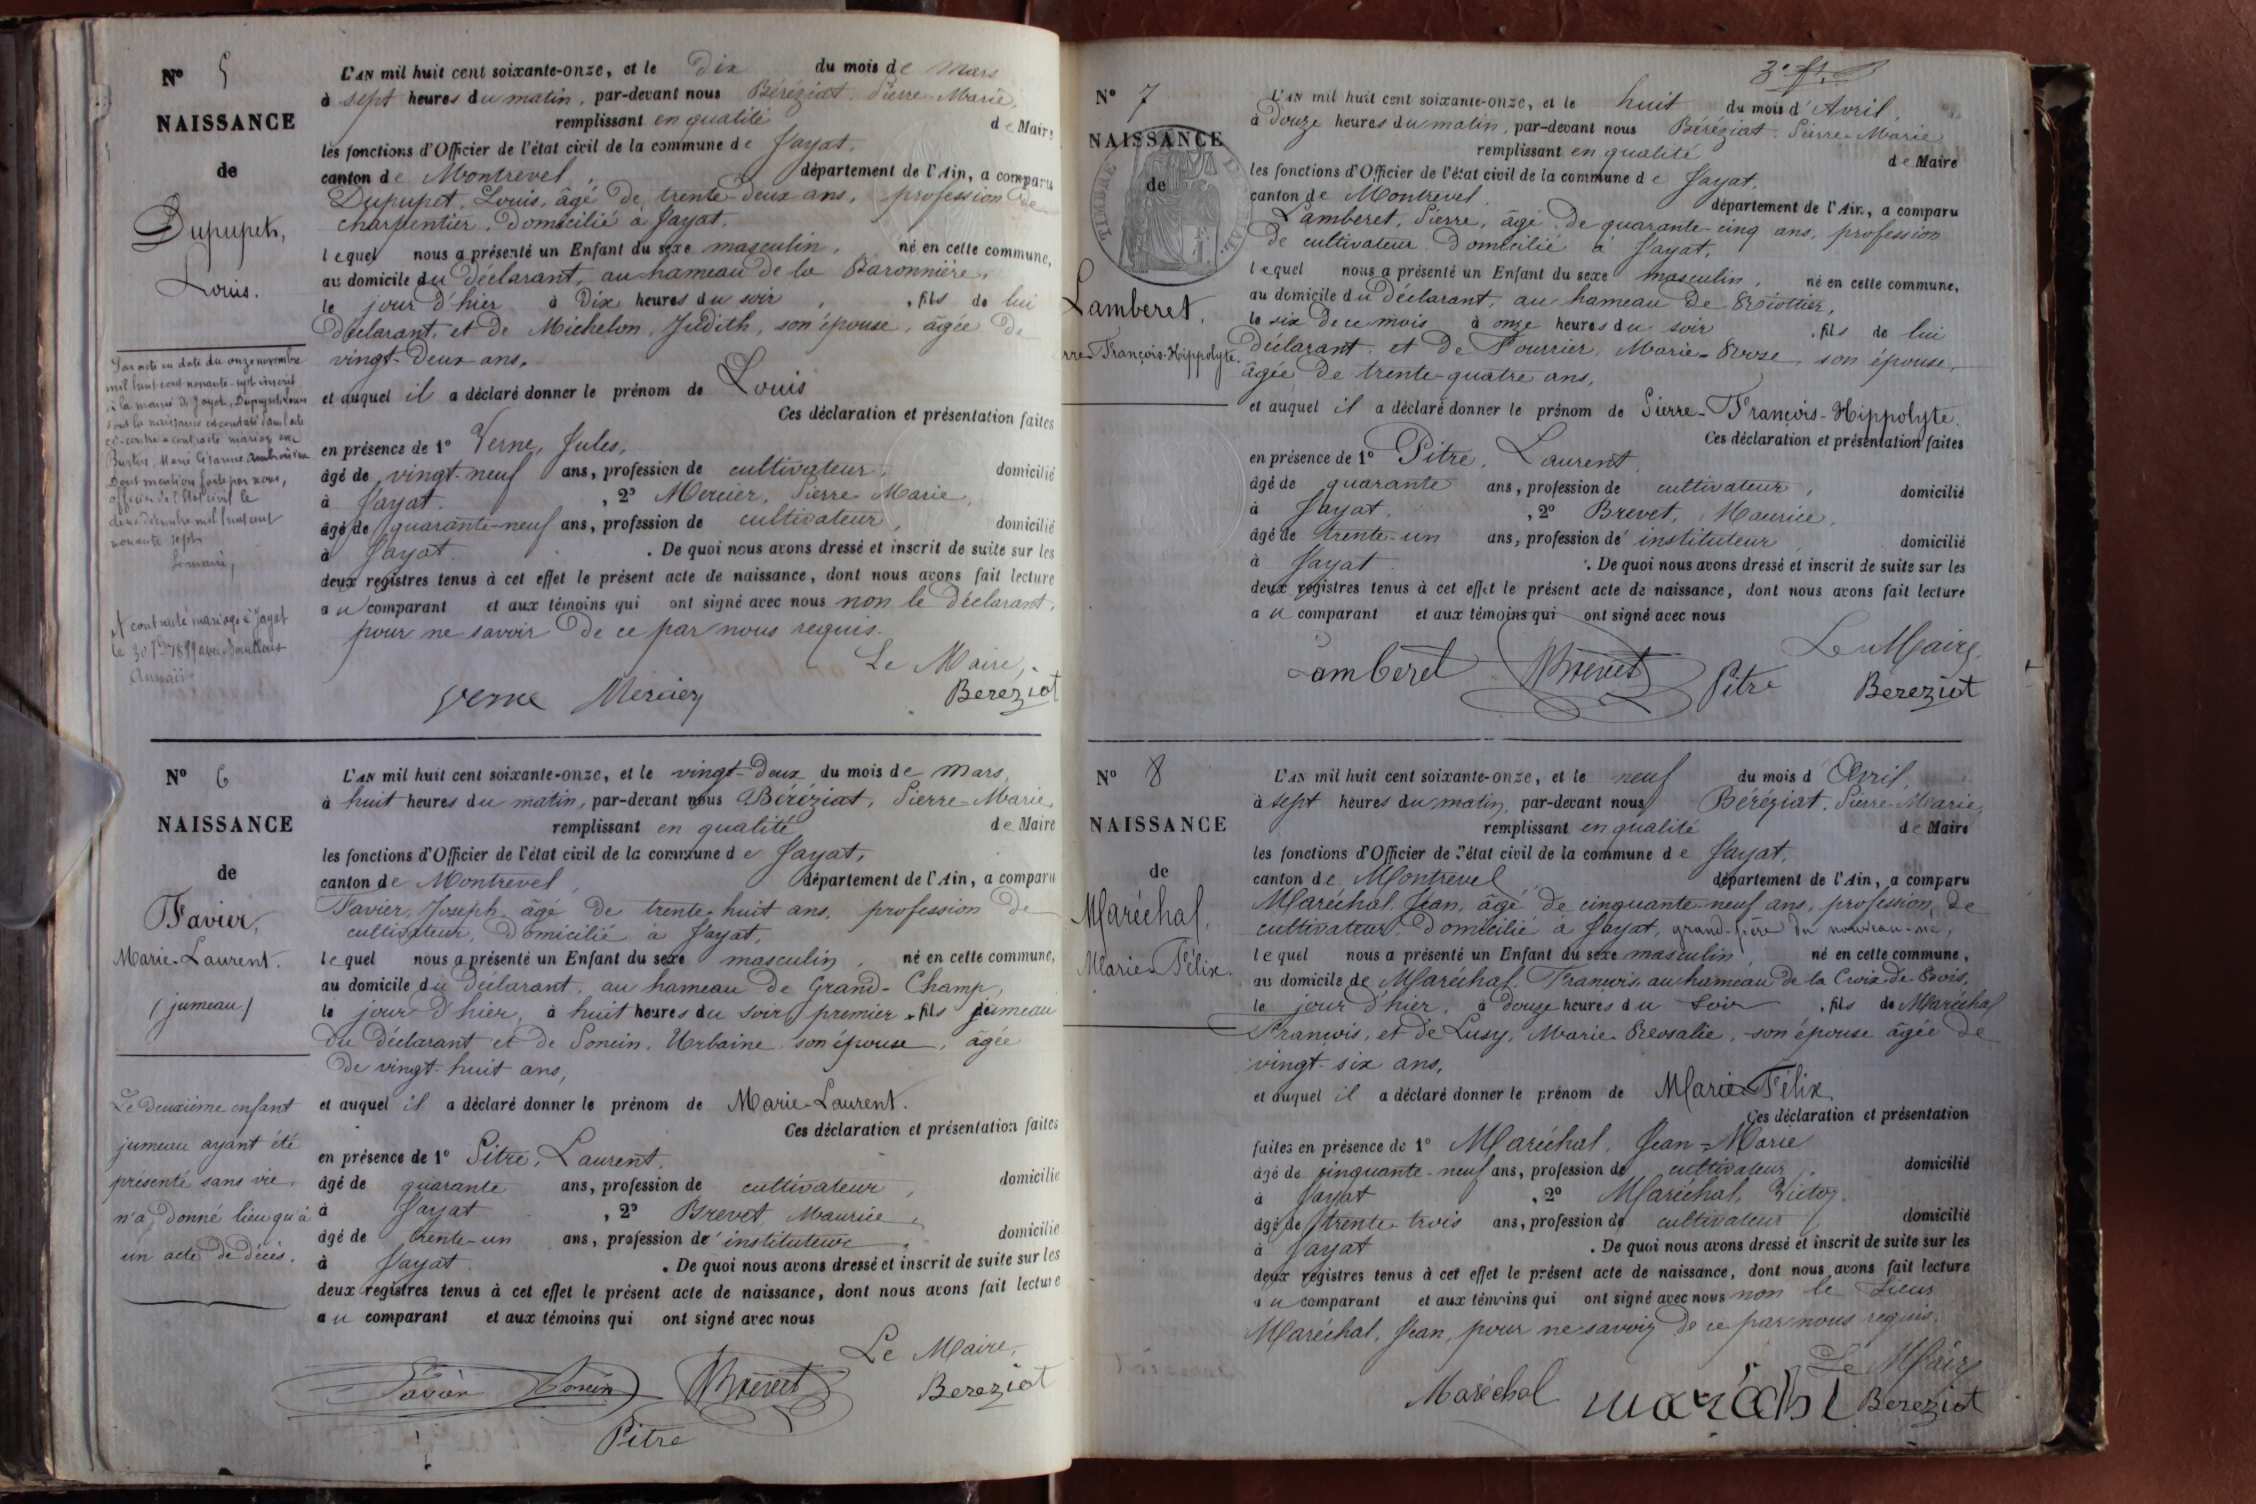 Nº 5
NAISSANCE
de
Dupupet,
Louis.
Par acte en date du onze novembre
mil huit cent nonante-sept inscrit
à la mairie de Jayat, Dupupet Louis
dont la naissance est constatée dans l'acte
ci-contre a contracté mariage avec
Marie
Dont mention faite par nous,
officier de l'état civil le
mil huit cent
nonante sept
Le maire,
contracté mariage à Jayat
le 30 1899 avec
L'AN mil huit cent soixante-onze, et le dix du mois de mars
à sept heures du matin, par-devant nous Béréziat, Pierre-Marie,
remplissant en qualité de Maire
les fonctions d'Officier de l'état civil de la commune de Jayat,
canton de Montrevel, département de l'Ain, a comparu
Dupupet, Louis, âgé de trente-deux ans, profession de
charpentier, domicilié à Jayat,
lequel nous a présenté un Enfant du sexe masculin, né en cette commune,
au domicile du déclarant, au hameau de la Baronnière,
le jour d'hier à dix heures du soir, fils de lui
déclarant, et de Michelon, Judith, son épouse, âgée de
vingt-deux ans,
et auquel il a déclaré donner le prénom de Louis
Ces déclaration et présentation faites
en présence de 1º Verne, Jules,
âgé de vingt-neuf ans, profession de cultivateur, domicilié
à Jayat, 2º Mercier, Pierre Marie,
âgé de quarante-neuf ans, profession de cultivateur, domicilié
à Jayat. De quoi nous avons dressé et inscrit de suite sur les
deux registres tenus à cet effet le présent acte de naissance, dont nous avons fait lecture
au comparant et aux témoins qui ont signé avec nous non le déclarant,
pour ne savoir de ce par nous requis.
Le Maire,
Verne Mercier Bereziat
Nº 6
NAISSANCE
de
Favier,
Marie-Laurent.
(jumeau)
Le deuxième enfant
jumeau ayant été
présenté sans vie,
n'a donné lieu qu'à
un acte de décès.
L'AN mil huit cent soixante-onze, et le vingt-deux du mois de mars,
à huit heures du matin, par-devant nous Béréziat, Pierre-Marie,
remplissant en qualité de Maire
les fonctions d'Officier de l'état civil de la commune de Jayat,
canton de Montrevel, département de l'Ain, a comparu
Favier, Joseph, âgé de trente-huit ans, profession de
cultivateur, domicilié à Jayat,
lequel nous a présenté un Enfant du sexe masculin, né en cette commune,
au domicile du déclarant, au hameau de Grand-Champ,
le jour d'hier, à huit heures du soir, premier fils jumeau
du déclarant et de Poncin, Urbaine, son épouse, âgée
de vingt-huit ans,
et auquel il a déclaré donner le prénom de Marie-Laurent.
Ces déclaration et présentation faites
en présence de 1º Pitre, Laurent,
âgé de quarante ans, profession de cultivateur, domicilié
à Jayat, 2º Brevet, Maurice,
âgé de trente-un ans, profession d'instituteur, domicilié
à Jayat. De quoi nous avons dressé et inscrit de suite sur les
deux registres tenus à cet effet le présent acte de naissance, dont nous avons fait lecture
au comparant et aux témoins qui ont signé avec nous
Le Maire,
Favier Poncin MBrevet Bereziat
Pitre
Nº 7
NAISSANCE
de
TIMBRE
Lamberet,
François-Hippolyte.
L'AN mil huit cent soixante-onze, et le huit du mois d'Avril,
à douze heures du matin, par-devant nous Béréziat, Pierre-Marie
remplissant en qualité de Maire
les fonctions d'Officier de l'état civil de la commune de Jayat,
canton de Montrevel, département de l'Ain, a comparu
Lamberet, Pierre, âgé de quarante-cinq ans, profession
de cultivateur, domicilié à Jayat,
lequel nous a présenté un Enfant du sexe masculin, né en cette commune,
au domicile du déclarant, au hameau de Riottier,
le six de ce mois à onze heures du soir, fils de lui
déclarant, et de Fourrier, Marie-Rose, son épouse,
âgée de trente-quatre ans,
et auquel il a déclaré donner le prénom de Pierre-François-Hippolyte.
Ces déclaration et présentation faites
en présence de 1º Pitre, Laurent,
âgé de quarante ans, profession de cultivateur, domicilié
à Jayat, 2º Brevet, Maurice,
âgé de trente-un ans, profession d'instituteur, domicilié
à Jayat. De quoi nous avons dressé et inscrit de suite sur les
deux registres tenus à cet effet le présent acte de naissance, dont nous avons fait lecture
au comparant et aux témoins qui ont signé avec nous
Le Maire,
Lamberet MBrevet Pitre Bereziat
Nº 8
NAISSANCE
de
Maréchal,
Marie-Félix.
L'AN mil huit cent soixante-onze, et le neuf du mois d'Avril,
à sept heures du matin, par-devant nous Béréziat, Pierre-Marie,
remplissant en qualité de Maire
les fonctions d'Officier de l'état civil de la commune de Jayat,
canton de Montrevel, département de l'Ain, a comparu
Maréchal, Jean, âgé de cinquante-neuf ans, profession de
cultivateur, domicilié à Jayat, grand-père du nouveau-né,
lequel nous a présenté un Enfant du sexe masculin, né en cette commune,
au domicile de Maréchal, François, au hameau de la Croix-de-Bois,
le jour d'hier, à douze heures du soir, fils de Maréchal
François, et de Lusy, Marie-Rosalie, son épouse âgée de
vingt-six ans,
et auquel il a déclaré donner le prénom de Marie-Félix.
Ces déclaration et présentation
faites en présence de 1º Maréchal, Jean-Marie
âgé de cinquante-neuf ans, profession de cultivateur, domicilié
à Jayat, 2º Maréchal, Victor,
âgé de trente-trois ans, profession de cultivateur, domicilié
à Jayat. De quoi nous avons dressé et inscrit de suite sur les
deux registres tenus à cet effet le présent acte de naissance, dont nous avons fait lecture
au comparant et aux témoins qui ont signé avec nous non le sieur
Maréchal, Jean, pour ne savoir de ce par nous requis.
Le Maire
Maréchal maréchal Bereziat